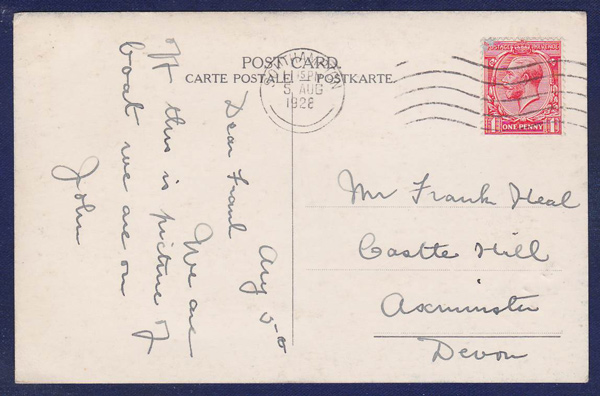 POST CARD
CARTE POSTALE — POSTKARTE
SOUTHAMPTON
5 AUG
1928
POSTAGE REVENUE
1 ONE PENNY 1
Aug 5
Dear Frank
We are
Off this is picture of
boat we are on
John
Mr Frank Heal
Castle Hill
Axminster
Devon